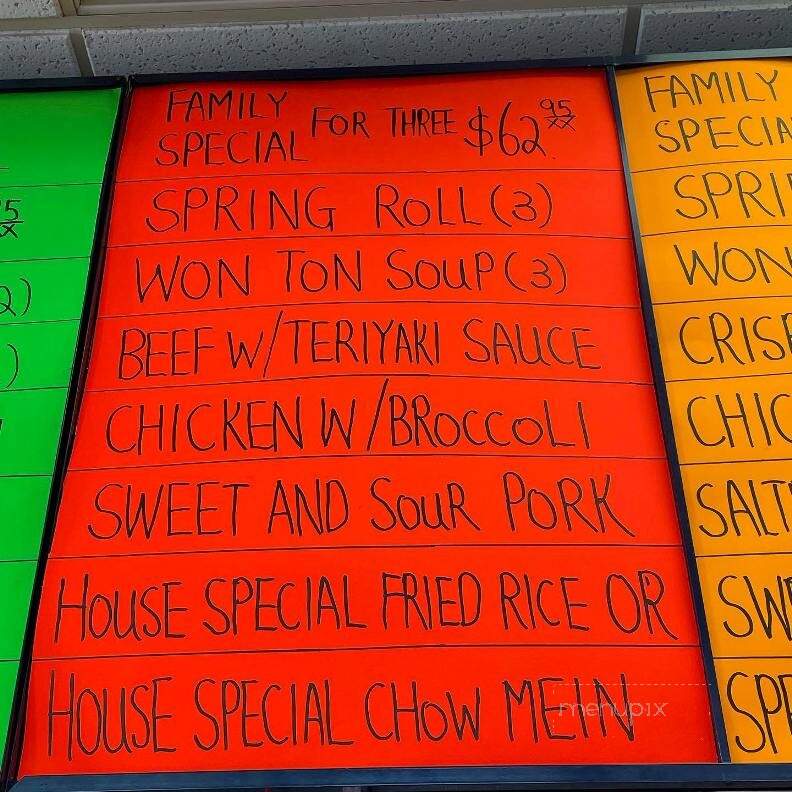 5
x
2)
)
FAMILY
SPECIAL FOR THREE $62.95
xx
SPRING ROLL (3)
WON TON SOUP (3)
BEEF W/TERIYAKI SAUCE
CHICKEN W/BROCCOLI
SWEET AND SOUR PORK
HOUSE SPECIAL FRIED RICE OR
HOUSE SPECIAL CHOW MEIN
FAMILY
SPECIA
SPRI
WON
CRISP
CHIC
SALT
SWE
SPR
menupix